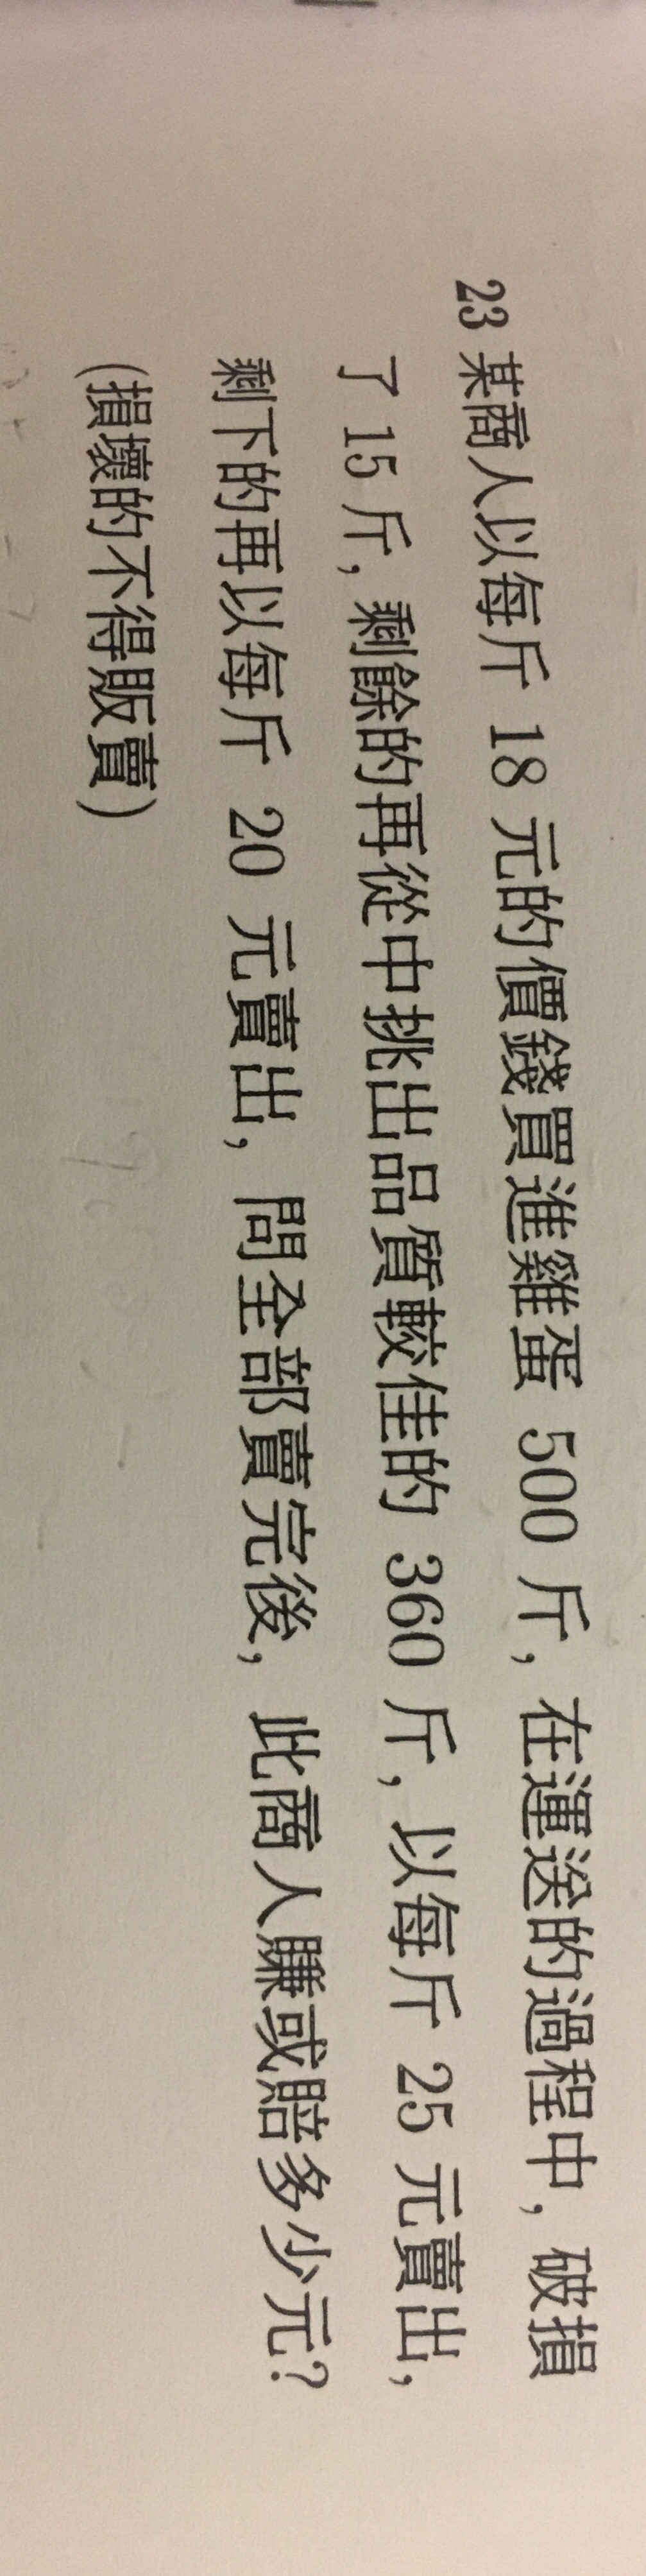 23 某商人以每斤 18 元的價錢買進雞蛋 500 斤, 在運送的過程中, 破損
了 15 斤, 剩餘的再從中挑出品質較佳的 360 斤, 以每斤 25 元賣出,
剩下的再以每斤 20 元賣出, 問全部賣完後, 此商人賺或賠多少元?
(損壞的不得販賣)